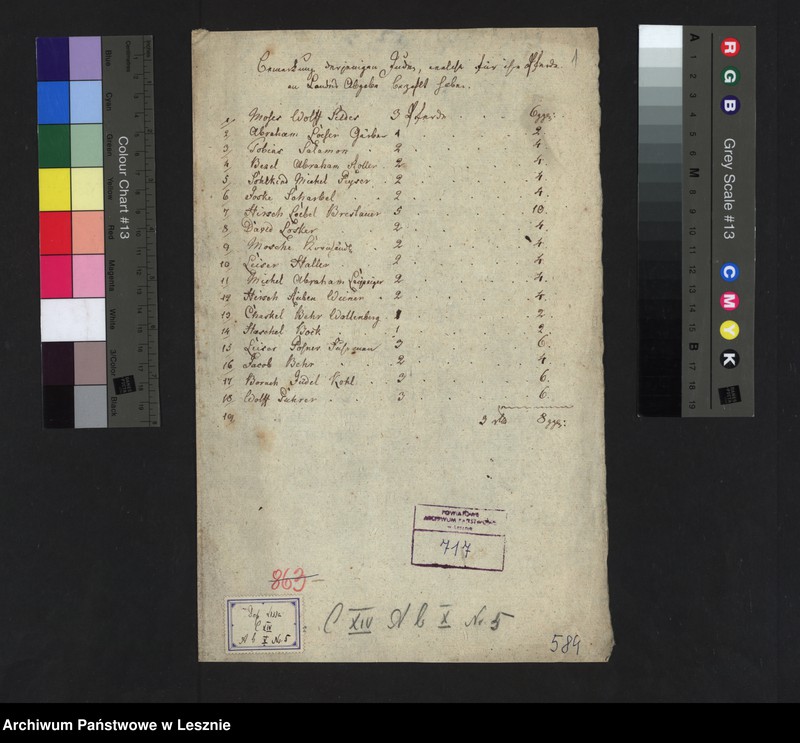 Bemerkung derjenigen Juden, welche für ihre Pferde 1
an Landes Abgabe bezahlt haben.
1 Moses Wolff 3 Pferde 6 ggr:
2 Abraham Loeser Gärber 1 2
3 Tobias Salamon 2 4
4 Besel Abraham Holler 2 4
5 Michel Peyser 2 4
6 Joske Scharbel 2 4
7 Hirsch Loebel Breslauer 5 10
8 David Losker 2 4
9 Mosche 2 4
10 Leiser Haller 2 4
11 Michel Abraham Leipziger 2 4
12 Hirsch Ruben Weiner 2 4
13 Cheskel Behr Wollenberg 1 2
14 Haschel Bock 1 2
15 Leiser Posner 3 6
16 Jacob Behr 2 4
17 Boruch Judel Kohl 3 6
18 Wolff 3 6
19
3 rtl 8 ggr:
POWIATOWE
ARCHIWUM PAŃSTWOWE
w Lesznie
717
863
Dep. Lissa
C XIV
A b X Nr 5
C XIV A b X Nr. 5
584
Colour Chart #13
Blue
Cyan
Green
Yellow
Red
Magenta
White
3/Color
Black
Centimetres
Grey Scale #13
R
G
B
C
M
Y
K
A 1 2 3 4 5 6 M 8 9 10 11 12 13 14 15 B 17 18 19
Archiwum Państwowe w Lesznie